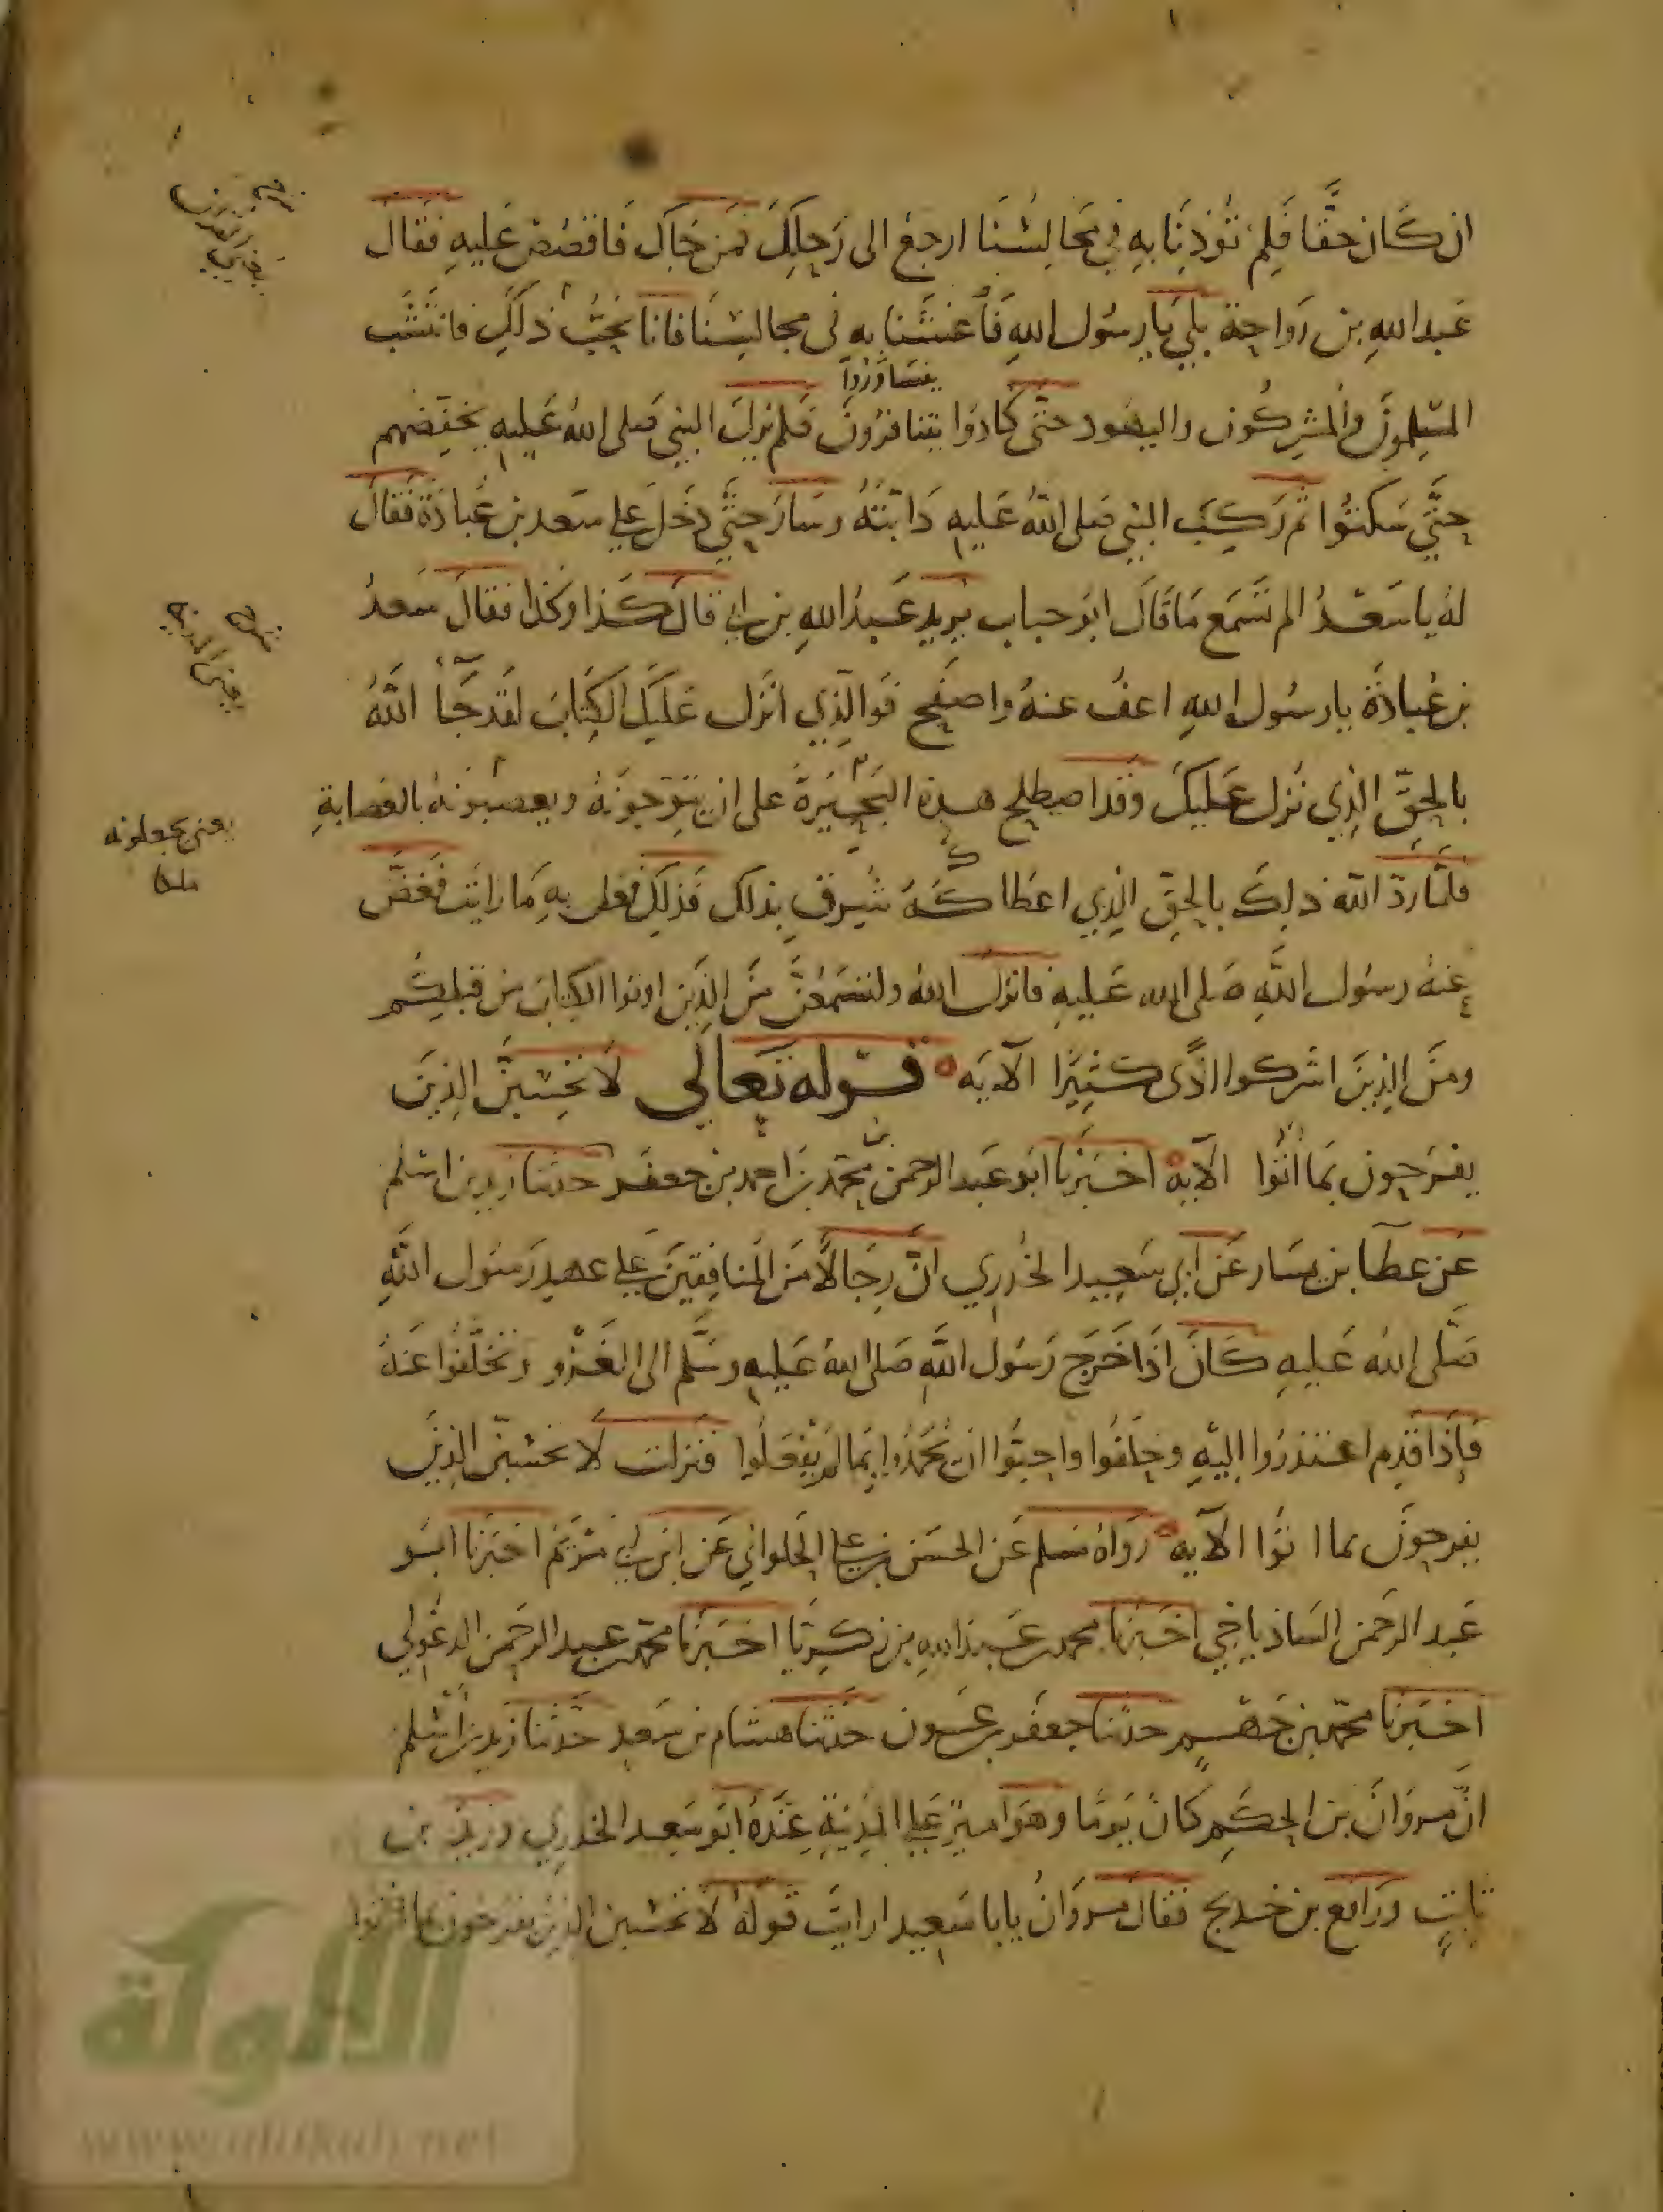 ان كَان حقّا فَلِمَ تُؤذِنَا بهِ في مَجَالِسُنَا ارجعْ الى رَحِلكَ فمن جَاك فَاقصُصْ عَليهِ فقَالَ
عَبد اللهِ بن رَواحة بلي يَا رسُول اللهِ فَأغشَنا به في مجالسِنَا فانا نُحِبُّ ذلكَ فاستَبَّ
يتسَاوَرُوا
المسلِمونَ والمشرِكُون واليهود حتى كَادوَا يتثاورُونَ فلم يزل النبي صَلى اللهُ عَليه يخفِّضهم
حتَّي سَكنتُوا ثُم رَكِبَ النبي صَلى اللهُ عَليهِ دَابتَهُ وسَارَ حتَّي دخَلَ علي سَعد بن عُبادَة فقَالَ
لهُ يا سَعْدُ الم تَسمَع مَا قَالَ ابو حباب يريد عَبدُ اللهِ بن ابي قالَ كذَا وكَذا فقالَ سَعدُ
بن عُبادَة يا رسُول اللهِ اعفُ عنهُ واصفَح فوَالَّذِي انَزَل عَليَك الكِتَابَ لقَد جَآءَ اللهُ
بالحقِّ الذِي نَزل عَليكَ وَقد اصطلح هذه البُحَيرَة على ان يتَوِّجونَهُ ويعصبونهُ بالعصَابةِ
يعني يجعلونه
ملكا
فلمَّا ردّ الله ذلِكَ بالحقِّ الذِي اعطاكَهُ شَرِقَ بذلك فذلِكَ فعل بهِ مَا رايَت فعَفَى
عنهُ رسوُل اللهِ صَلى الله عَليهِ فانزل اللهُ ولتَسمَعُنَّ منَ الذِين اوتوا الكِتابَ من قبلِكُم
ومنَ الذِينَ اشركوا اذًى كثيرًا الآيَه قوله تعَالَى لَا تحْسِبنَّ الذِينَ
يفرَحون بمَا أتُوا الآية اخبَرنَا ابو عَبد الرحمن بن محمَّد بن احمد بن جعفَر حدثنا زيد بن اسْلم
عَن عطآ بن يسَار عَن ابي سَعِيد الخدرِي انَّ رِجَالًا منَ المنافِقِينَ علي عهدِ رَسوُل اللهِ
صَلى اللهُ عَليهِ كَانَ اذَا خَرَج رَسُول اللهِ صَلى اللهُ عَليهِ وسَلَّم الى الغَزو وتخلَّفوُا عَنهُ
فإذَا قَدِم اعتذرُوا اليْهِ وحلَفُوا واحبُّوا ان يُحمَدُوا بِمَا لَم يَفعَلُوا فنزلت لَا تحسبنّ الذِينَ
يفرحونَ بما اتوُا الآيه رَوَاهُ مسلم عَن الحسَن بن علي الحلواني عَن ابن ابي مَرْيَمَ اخبَرنا ابو
عَبد الرحمن الشاذياخي اخبَرنا محمد بن عَبد الله بن زكريّا اخبَرنَا محمّد بن عبد الرحمن الدغُولي
اخبَرنَا محمّد بن جَهْم حدثنا جعفَر بن عَون حَدثنا هشَام بن سَعد حَدّثنا زيد بن اسْلم
انَّ مروَانَ بن الحكَم كانَ يَومًا وهوَ اميرٌ علي المدِينةِ عنْدَهُ ابو سَعِيد الخدرِي وزيد بن
ثابتٍ ورَافع بن خديج فقالَ مروَانُ يا با سَعِيد ارايتَ قولهُ لَا تحسَبن الذِين يفرحون بما اتوا